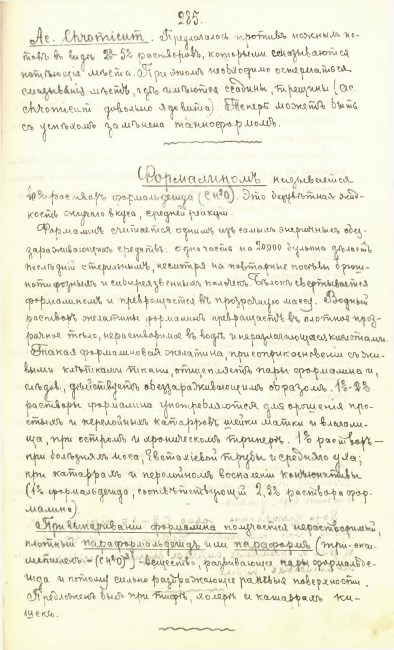 285.
Ac. Chromicum. Предлагалась противъ ножныхъ по-
товъ въ видѣ 2%-5% растворовъ, которыми смазываются
потѣющія мѣста. При этомъ необходимо остерегаться
смазыванія мѣстъ, гдѣ имѣются ссадины, трещины (ac.
chromicum довольно ядовита). Теперь можетъ быть
съ успѣхомъ замѣнена танноформомъ.
Формалиномъ называется
40% растворъ формальдегида (CH²O). Это безцвѣтная жид-
кость жгучаго вкуса, средней реакціи.
Формалинъ считается однимъ изъ самыхъ энергичныхъ обез-
зараживающихъ средствъ. Одна часть на 20000 бульона дѣлаетъ
послѣдній стерильнымъ, несмотря на повторные посѣвы брюш-
нотифозныхъ и сибиреязвенныхъ палочекъ. Бѣлокъ свертывается
формалиномъ и превращается въ прозрачную массу. Водный
растворъ желатины формалинъ превращаетъ въ плотное проз-
рачное тѣло, нерастворимое въ водѣ и неразлагающееся кислотами.
Такая формалиновая желатина, при соприкосновеніи съ жи-
выми клѣтками ткани, отщепляетъ пары формалина и,
слѣдов., дѣйствуетъ обеззараживающимъ образомъ. 1%-2%
растворы формалина употребляются для орошенія про-
стыхъ и перелойныхъ катарровъ шейки матки и влагали-
ща, при остромъ и хроническомъ трипперѣ. 1% растворъ -
при болѣзняхъ носа, Евстахіевой трубы и средняго уха;
при катаррахъ и перелойномъ воспаленіи конъюнктивы
(1% формальдегида, соотвѣтствующій 2,5% раствора фор-
малина)
При выпариваніи формалина получается нерастворимый,
плотный параформальдегидъ или параформъ (три-окси-
метиленъ - (CH²O)³) - вещество, развивающее пары формальде-
гида и потому сильно раздражающее раневыя поверхности.
Предложенъ былъ при тифѣ, холерѣ и катаррахъ ки-
шекъ.